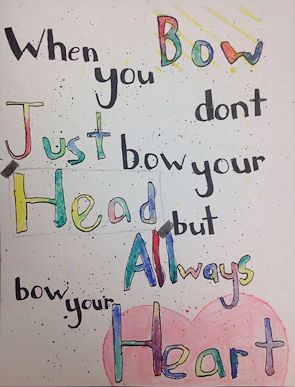 When you Bow
dont
Just bow your
Head but
Allways
bow your
Heart